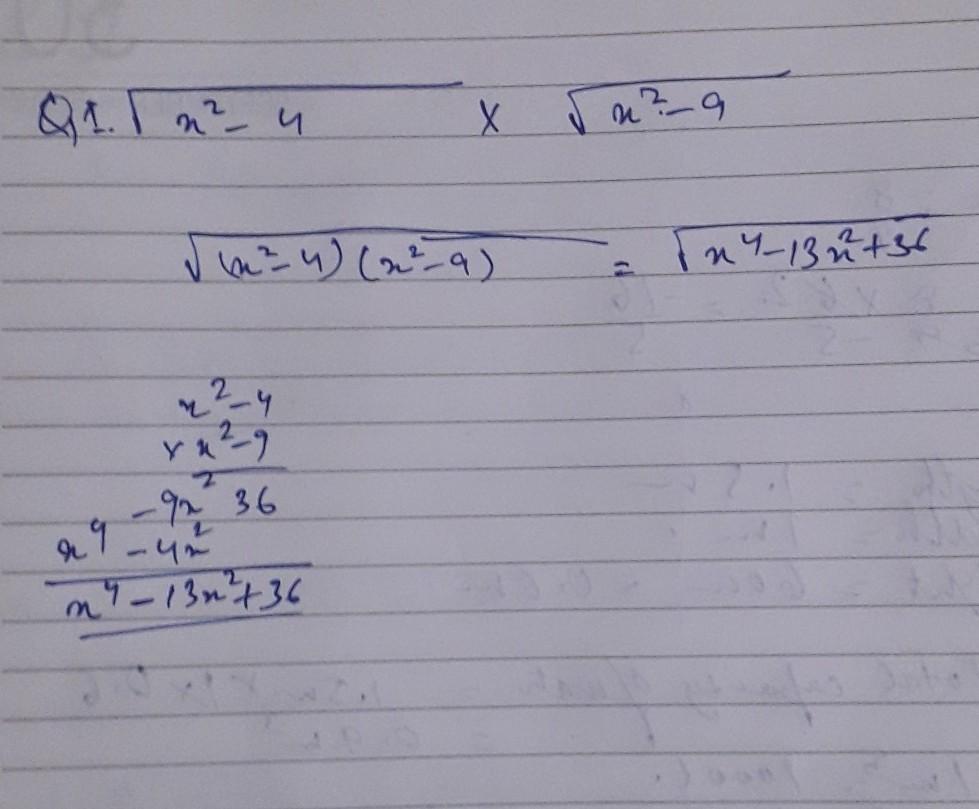 Q1. √x²-4 × √x²-9
√(x²-4)(x²-9) = √x⁴-13x²+36
x²-4
× x²-9
-9x² 36
x⁴ -4x²
x⁴-13x²+36